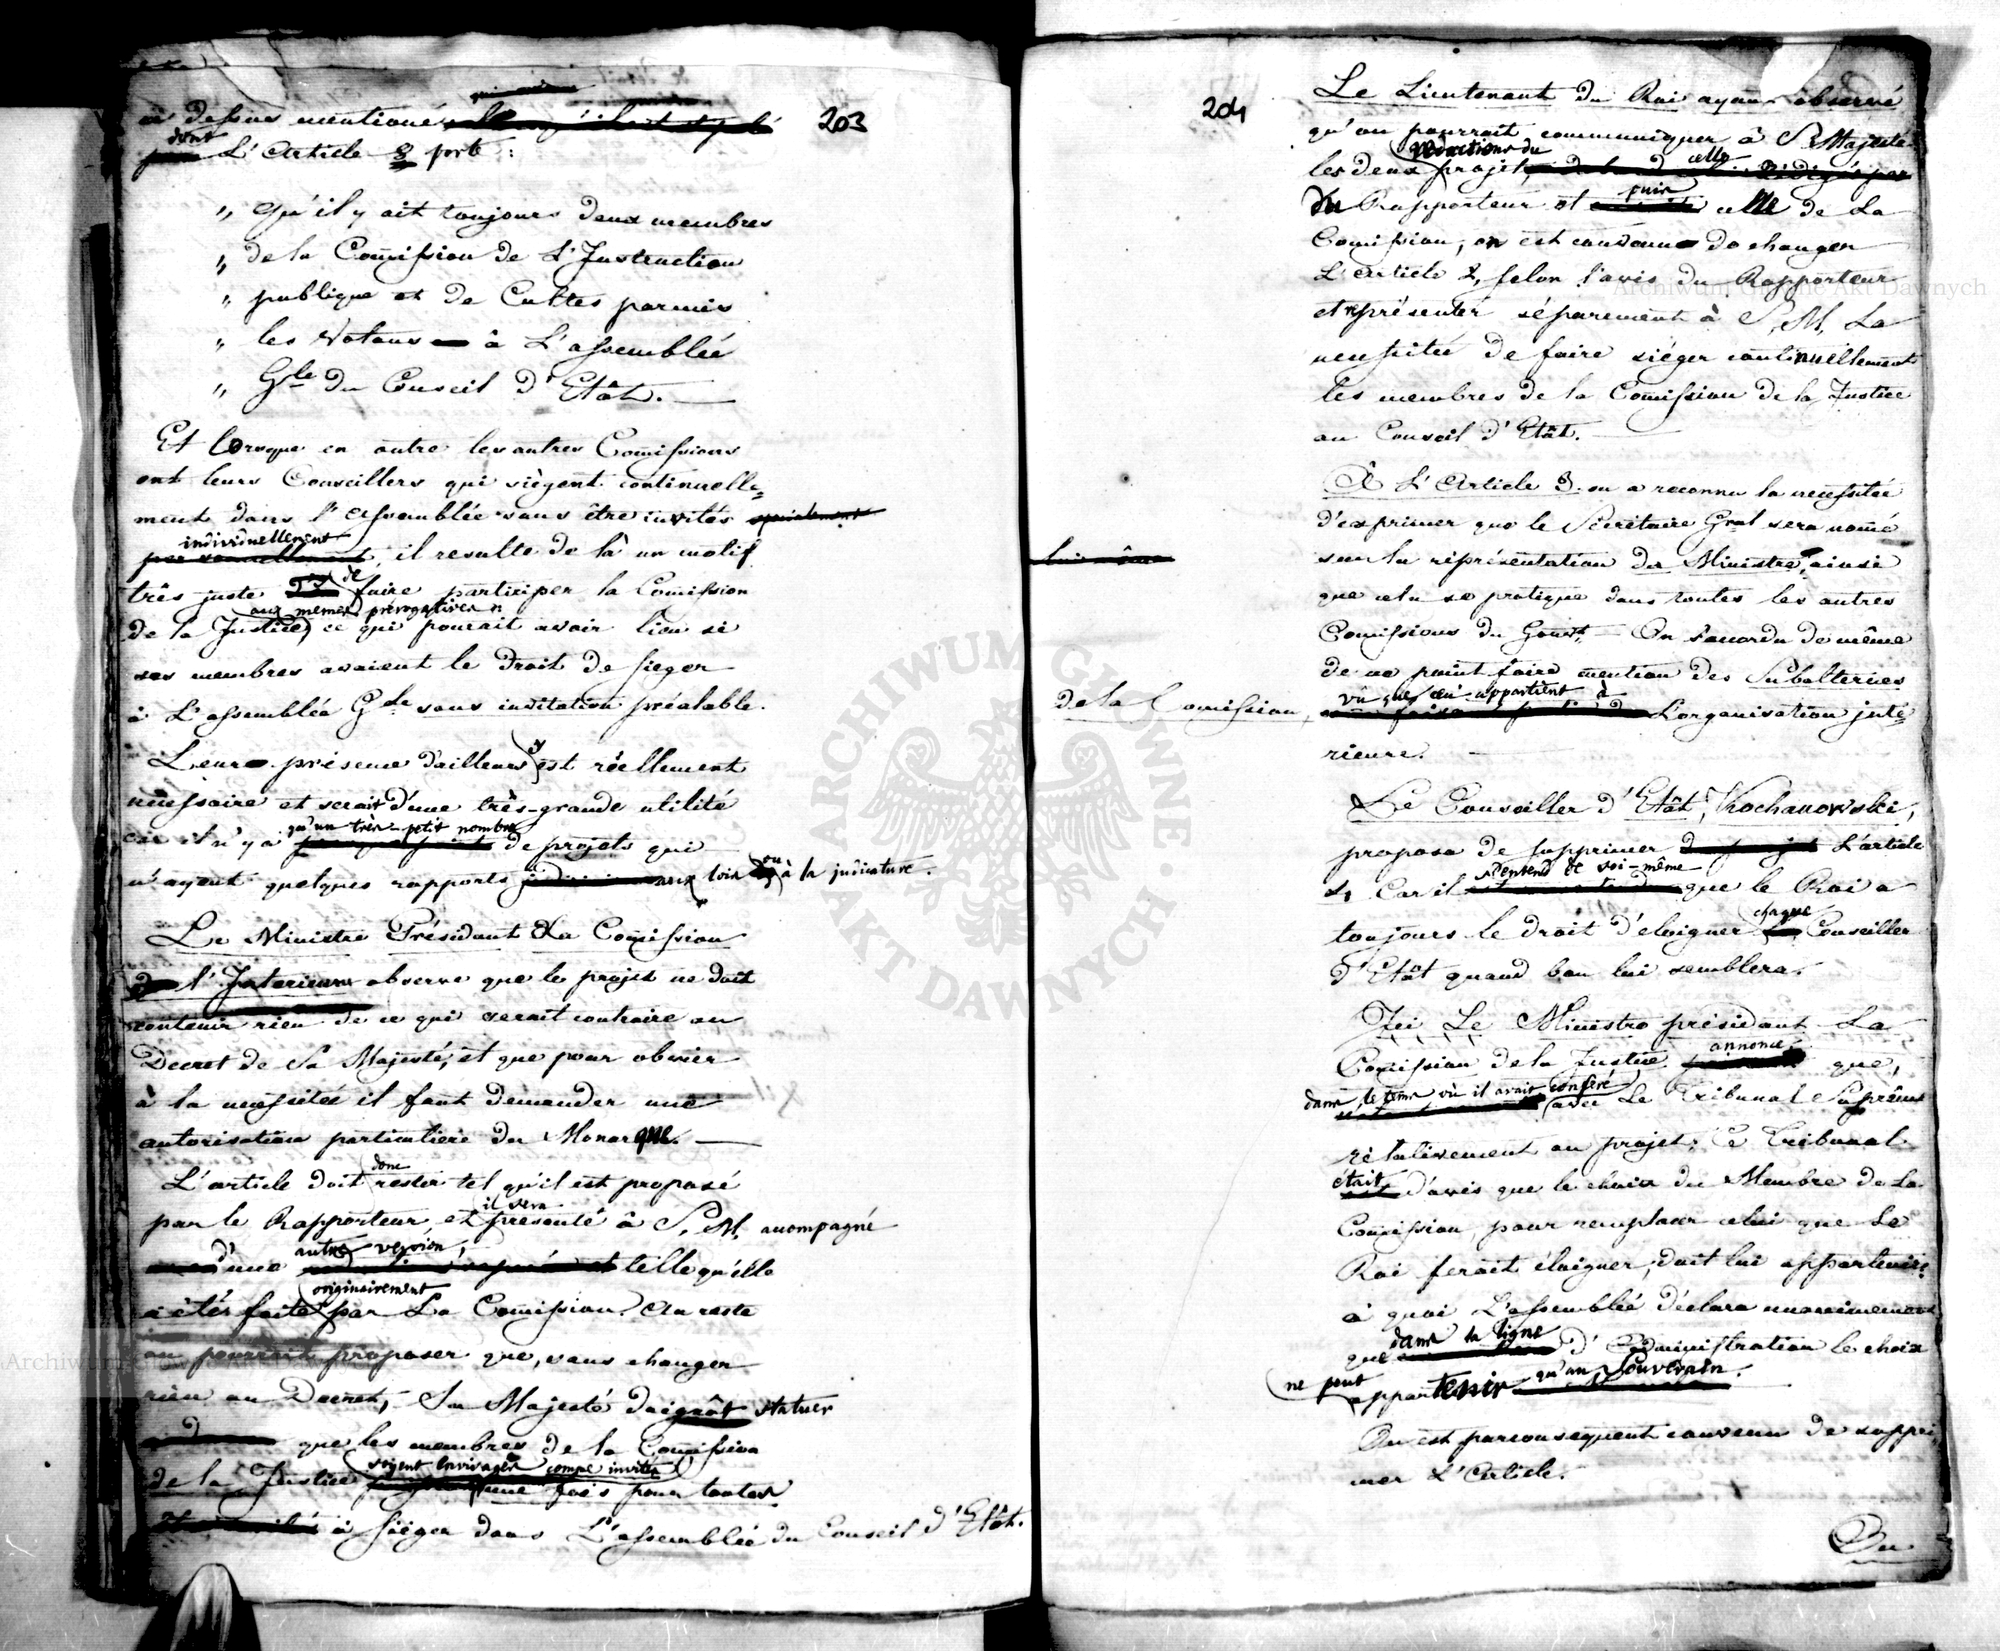 203
ci dessus mentionés
dont L'Article 8 porte :
„ Qu'il y ait toujours deux membres
„ de la Comission de L'Instruction
„ publique et de Cultes parmis
„ les Votans à L'assemblée
„ Gle du Conseil d'Etât. —
Et lorsque en outre les autres Comissions
ont leurs Conseillers qui siègent continuelle-
ment dans l'Assemblée sans être invités
individuellement, il resulte de là un motif
très juste de faire participer la Comission
de la Justice aux memes prérogatives
ce qui pourait avoir lieu si
ses membres avaient le droit de sieger
à L'assemblée Gle sans invitation préalable.
Leur présence d'ailleurs y est réellement
necessaire et serait d'une très-grande utilité
car il n'y a qu'un très-petit nombre de projets qui
n'ayent quelques rapports aux loix ou à la judicature.
Le Ministre Présidant La Comission
de l'Interieur observe que le projet ne doit
contenir rien de ce qui serait contraire au
Decret de Sa Majesté, et que pour obvier
à la necessitée il faut demander une
autorisation particuliere du Monarque. —
L'article doit donc rester tel qu'il est proposé
par le Rapporteur, et il sera presenté à S. M. acompagné
d'une autre version, telle qu'elle
a étés faite originairement par La Comission. Au reste
on pourrait proposer que, sans changer
rien au Decret, Sa Majesté daignât statuer
que les membres de la Comission
de la Justice soyent envisagés come invités une fois pour toutes
à sieger dans L'assemblée du Conseil d'Etât.
204
Le Lieutenant du Roi ayant observé
qu'on pourrait communiquer à S. Majesté
les deux redactions du projet, celle
du Rapporteur et puis celle de La
Comission, on est convenu de changer
L'article 2, selon l'avis du Rapporteur
et représenter séparement à S. M. La
necessitée de faire siéger continuellement
les membres de la Comission de la Justice
au Conseil d'Etât. —
À L'Article 3. on a reconnu la necessitée
d'exprimer que le Sécrétaire Gral sera nomé
sur la réprésentation du Ministre, ainsi
que cela se pratique dans toutes les autres
Comissions du Gouvt. — On s'accorda de même
de ne point faire mention des Subalternes
de la Comission, vû que ceci appartient à L'organisation inté-
rieure. —
Le Conseiller d'Etât, Kochanowski,
proposa de supprimer L'article
4, Car il s'entend de soi-même que le Roi a
toujours le droit d'éloigner chaque Conseiller
d'Etât quand bon lui semblera.
Ici, Le Ministre présidant La
Comission de la Justice annonce, que,
dans le tems où il avait conferé avec Le Tribunal Suprême
rélativement au projet, Ce Tribunal
était d'avis que le choix du Membre de La
Comission pour remplacer celui que Le
Roi ferait éloigner, doit lui appartenir.
à quoi L'assemblée déclara unanimement
que dans la ligne d'Administration le choix
ne peut appartenir qu'au Souverain.
On est parconsequent convenu de suppri-
mer L'Article.
Du